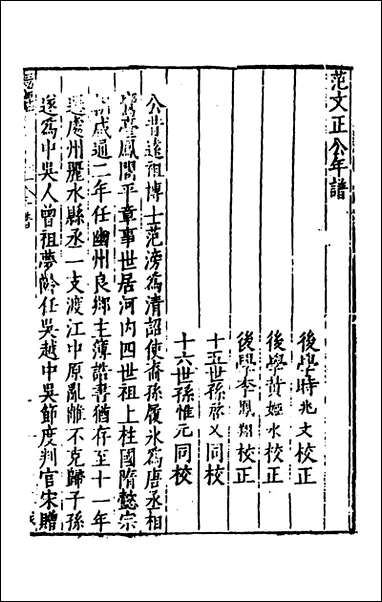 范文正公年譜
後學時兆文校正
後學黃姬水校正
後學李鳳翔校正
十五世孫啟乂同校
十六世孫惟元同校
公昔遠祖博士范滂為清詔使裔孫履氷為唐丞相
鸞臺鳳閣平章事世居河内四世祖上柱國隋懿宗
咸通二年任幽州良鄉主薄誥書猶存至十一年
遷處州麗水縣丞一支渡江中原亂離不克歸子孫
遂為中吳人曾祖夢齡任吳越中吳節度判官宋贈